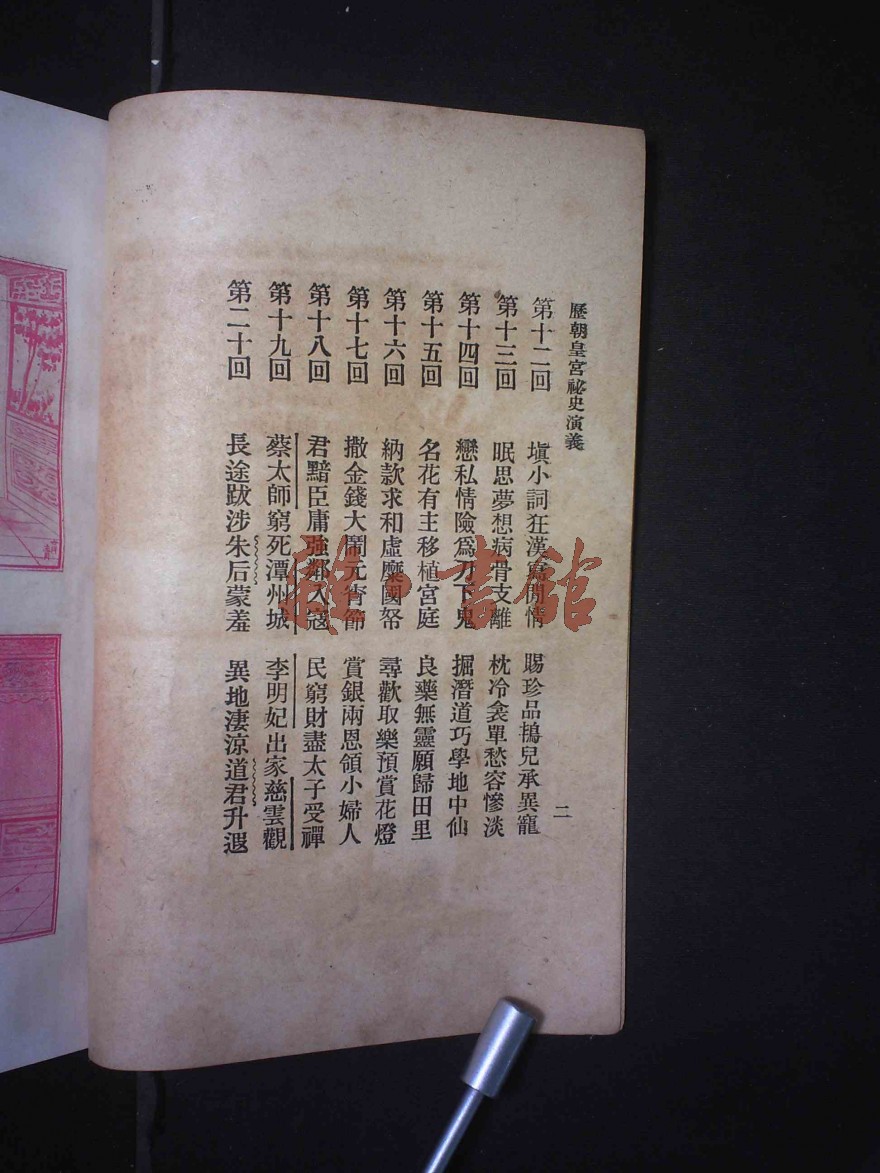 歷朝皇宮祕史演義
第十二回 塡小詞狂漢寫閒情 賜珍品鴇兒承異寵
第十三回 眠思夢想病骨支離 枕冷衾單愁容慘淡
第十四回 戀私情險爲刀下鬼 掘潛道巧學地中仙
第十五回 名花有主移植宮庭 良藥無靈願歸田里
第十六回 納款求和虛糜國帑 尋歡取樂預賞花燈
第十七回 撒金錢大鬧元宵節 賞銀兩恩領小婦人
第十八回 君黯臣庸強鄰入寇 民窮財盡太子受禪
第十九回 蔡太師窮死潭州城 李明妃出家慈雲觀
第二十回 長途跋涉朱后蒙羞 異地淒涼道君升遐
二